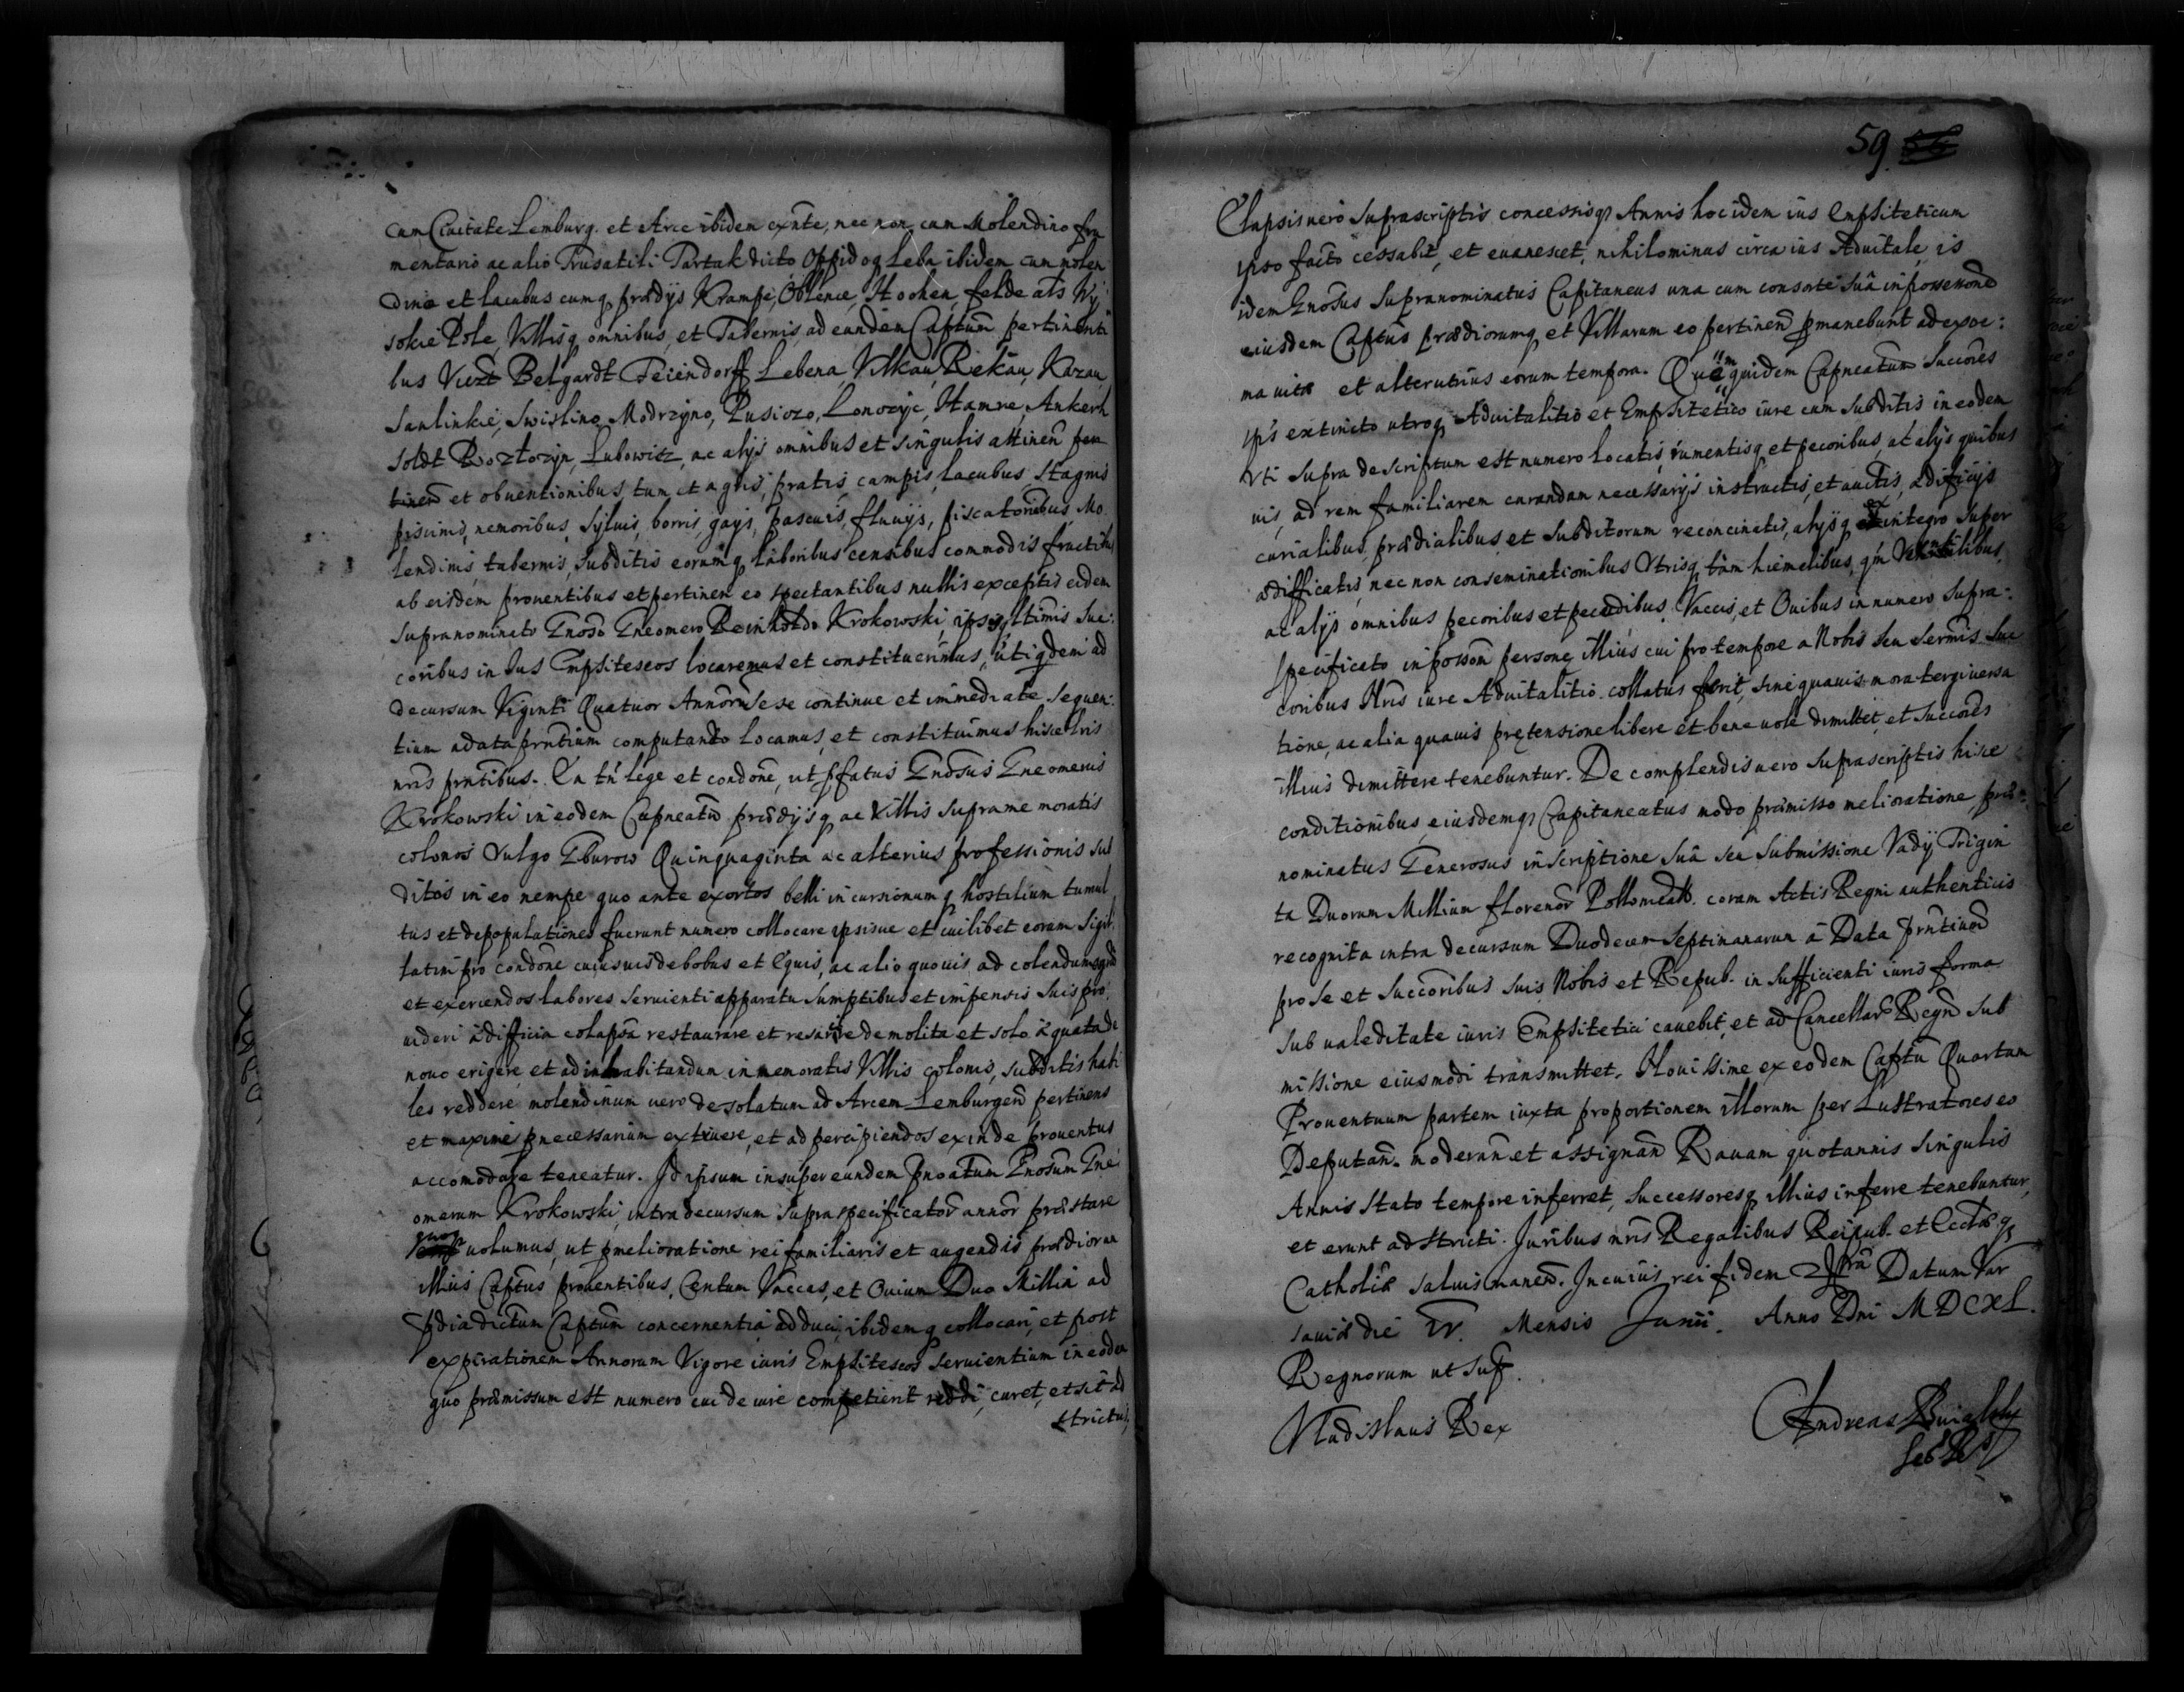 cum Ciuitate Lemburg. et Arce ibidem exnte, nec non cum Molendino fru
mentario ac alio Trusatili Tartak dicto, Oppidoq Leba ibidem cum molen
dino et lacubus cumq prædijs Krampe, Oblence, Hoohen, felde als Wy
sokie Pole, Villisq omnibus, et Tabernis, ad eundem Captum pertinenti
bus Viczt Belgardt Feiendorff Lebena Vilkau, Rekau, Kazau
Sanlinkie, Swislino, Modrzyno, Pusiczo, Lonozyc, Hamre Ankerh
soldt Roztozyn, Lubowitz, ac alijs omnibus et singulis attinen per
tinen et obuentionibus, tum et agris, pratis, campis, lacubus, stagnis
piscinis, nemoribus, syluis, borris, gajs, pascuis, fluuijs, piscatoribus, Mo
lendinis, tabernis, subditis eorumq laboribus censibus commodis fructib
ab eisdem prouentibus et pertinen eo spectantibus nullis exceptis eidem
supranominato Gnoso Gneomero Reinholdo Krokowski, ipsisq ltimis suc:
coribus in Ius Emphiteseos locaremus et constituerimus, uti qdem ad
decursum Viginti Quatuor Annorum sese continue et immediate sequen:
tium a data prntium computando locamus, et constituimus hisce lris
nris prntibus. Ea tn lege et condone, ut pfatus Gnosus Gneomerus
Krokowski in eodem Capneatu prædijsq ac Villis supra me moratis
colonos vulgo Gburow Quinquaginta ac alterius professionis sub
ditos in eo nempe quo ante exortos belli incursionumq hostilium tumul
tus et depopulationes fuerunt numero collocare ipsisue et cuilibet eorum sigil
latim pro condone cuiusuis de bobus et Equis, ac alio quouis ad colendum
et exercendos labores seruienti apparatu sumptibus et impensis suis pro
uideri ædificia colapsa restaurare et demolita et solo æquata de
nouo erigere et ad inhabitandum in memoratis Villis colonis, subditis habi
les reddere molendinum uero desolatum ad Arcem Lemburgen pertinens
et maxime pnecessarium extruere, et ad percipiendos exinde prouentus
accomodare teneatur. Id ipsum insuper eundem pnoatum Gnosum Gne
omerum Krokowski, intra decursum supraspecificator annor præstare
quoq uolumus, ut pmelioratione rei familiaris et augendis prædiorum
illius Captus prouentibus, Centum Vaccas, et Ouium Duo Millia ad
pdia dictum Captum concernentia adduci, ibidemq collocari, et post
expirationem Annorum Vigore iuris Emphiteseos seruientium in eodem
quo præmissum est numero cui de iure competierit reddi, curet, et sit ad
strictus,
59 56
Elapsis uero suprascriptis concessisq Annis hoc idem ius Emphiteticum
ipso facto cessabit, et euanescet, nihilominus circa ius Aduitale is
idem Gnosus supranominatus Capitaneus una cum consorte sua in possessione
eiusdem Captus prædiorumq et Villarum eo pertinen pmanebunt ad extre:
ma uitæ et alterutrius eorum tempora. Quem quidem Capneatum succores
ips extincto utroq Aduitalitio et Emphitetico iure cum subditis in eodem
vti supra descriptum est numero locatis, iumentisq et pecoribus, ac alijs quibus
uis, ad rem familiarem curandam necessarijs instructis, et auctis, ædificijs
curialibus, prædialibus, et subditorum reconcinatis, alijsq ex integro super
ædifficatis, nec non conseminationibus Vtrisq tam hiemalibus, qm
ac alijs omnibus pecoribus et pecudibus, Vaccis, et Ouibus in numero supra:
specificato in possom persone, illius cui pro tempore a Nobis seu Sermis Suc
coribus Nris iure Aduitalitio collatus fuerit, sine quauis mora tergiuersa
tione, ac alia quauis prętensione libere et beneuole dimittet, et succores
illius dimittere tenebuntur. De complendis uero suprascriptis hisce
conditionibus, eiusdemq Capitaneatus modo præmisso melioratione, præ=
nominatus Generosus inscriptione sua seu submissione Vadij Trigin
ta Duorum Millium florenor Pollonicalb. coram Actis Regni authenticis
recognita intra decursum Duodecem Septimanarum a Data prntium
pro se et succoribus suis Nobis et Repub. in sufficienti iuris forma
sub ualeditate iuris Emphitetici cauebit, et ad Cancellar Regn sub
missione eiusmodi transmittet. Nouissime ex eodem Captu Quartam
Prouentuum partem iuxta proportionem illorum per Lustratores eo
Deputan. moderan et assignan Rauam quotannis singulis
Annis stato tempore inferret, successoresq illius inferre tenebuntur,
et erunt adstricti. Juribus nris Regalibus Reipub. et Ecctæq
Catholicæ saluis manen. In cuius rei fidem Datum Var
sauiæ die IV. Mensis Junii. Anno Dni MDCXL.
Regnorum ut sup.
Vladislaus Rex
Andreas